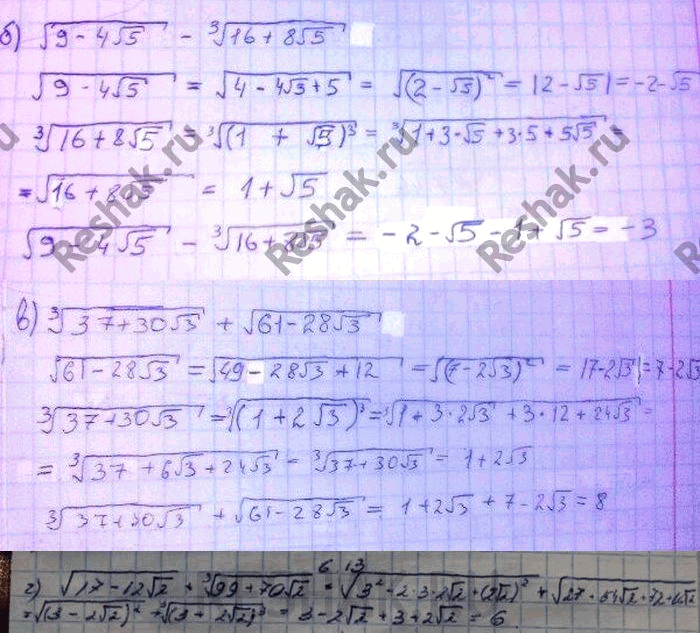 б) √9 - 4√5 - ³√16 + 8√5
√9 - 4√5 = √4 - 4√5 + 5 = √(2 - √5)² = |2 - √5| = -2 - √5
³√16 + 8√5 = ³√(1 + √5)³ = ³√1 + 3·√5 + 3·5 + 5√5 =
= √16 + 8√5 = 1 + √5
√9 - 4√5 - ³√16 + 8√5 = -2 - √5 - 1 + √5 = -3
в) ³√37 + 30√3 + √61 - 28√3
√61 - 28√3 = √49 - 28√3 + 12 = √(7 - 2√3)² = |7 - 2√3| = 7 - 2√3
³√37 + 30√3 = ³√(1 + 2√3)³ = ³√1 + 3·2√3 + 3·12 + 24√3 =
= ³√37 + 6√3 + 24√3 = ³√37 + 30√3 = 1 + 2√3
³√37 + 30√3 + √61 - 28√3 = 1 + 2√3 + 7 - 2√3 = 8
6 13
г) √17 - 12√2 + ³√99 + 70√2 = √3² - 2·3·2√2 + (2√2)² + √27 + 54√2 + 72 +
= √(3 - 2√2)² + ³√(3 + 2√2)³ = 3 - 2√2 + 3 + 2√2 = 6
Reshak.ru
Reshak.ru
Reshak.ru